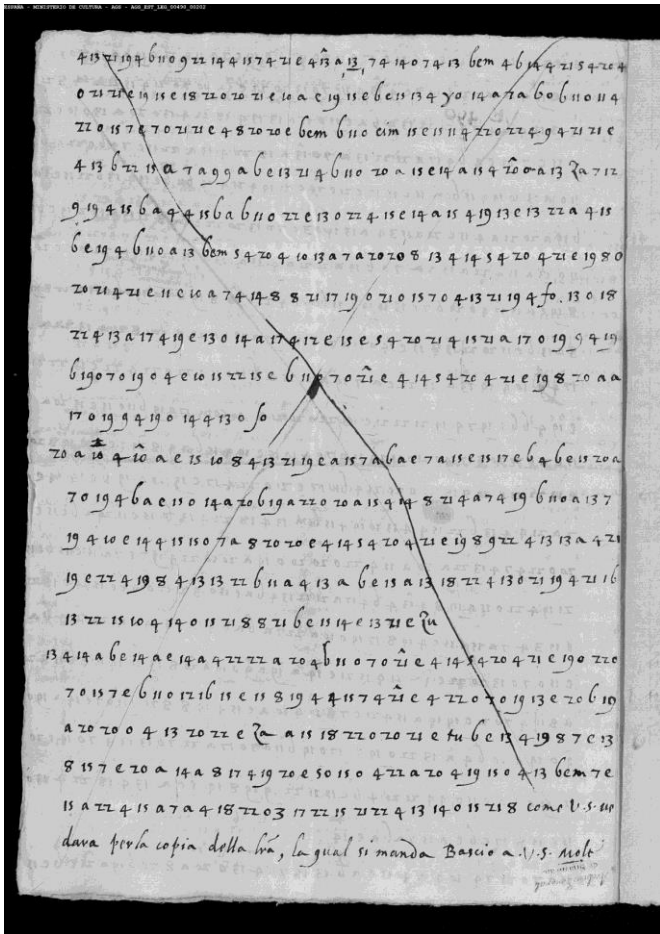 ESPAÑA - MINISTERIO DE CULTURA - AGS - AGS_EST_LEG_00490_00202
4 13 21 19 4 b 11 0 9 22 14 4 15 7 4 21 e 4 13 a 13 7 4 14 0 7 4 13 bem 4 b 14 4 21 5 4 20 4
0 21 21 e 19 15 e 18 22 0 20 21 e 10 a e 19 15 e b e 15 13 4 yo 14 a 7 a b o b 11 0 11 4
22 0 15 7 e 7 0 21 21 e 4 8 20 20 e bem b 11 0 eim 15 e 15 11 4 22 0 22 4 9 4 21 21 e
4 13 b 22 15 a 7 a 9 9 a b e 13 21 4 b 11 0 20 a 15 e 14 a 15 4 20 0 a 13 Za 7 12
9 19 4 15 b a 4 4 15 b a b 11 0 22 e 13 0 22 4 15 e 14 a 15 4 19 13 e 13 22 a 4 15
b e 19 4 b 11 0 a 13 bem 5 4 20 4 10 13 a 7 a 20 20 8 13 4 14 5 4 20 4 21 e 19 8 0
20 21 4 21 e 11 e 10 a 7 4 14 8 8 21 17 19 0 21 0 15 7 0 4 13 21 19 4 fo. 13 0 18
22 4 13 a 17 4 19 e 13 0 14 a 17 4 12 e 15 e 5 4 20 21 4 15 21 a 17 0 19 9 4 19
b 19 0 7 0 19 0 4 e 10 15 22 15 e b 11 0 7 0 21 e 4 14 5 4 20 4 21 e 19 8 20 a a
17 0 19 9 4 19 0 14 4 13 0 fo
20 a 10 4 10 a e 15 10 8 4 13 21 19 e a 15 7 a b a e 7 a 15 e 15 17 e b 4 b e 15 20 a
7 0 19 4 b a e 15 0 14 a 20 b 19 a 22 0 20 a 15 4 14 8 21 4 a 7 4 19 b 11 0 a 13 7
19 4 10 e 14 4 15 15 0 7 a 8 20 20 e 4 14 5 4 20 4 21 e 19 8 9 22 4 13 13 a 4 21
19 e 22 4 19 8 4 13 13 22 b 11 a 4 13 a b e 15 a 13 18 22 4 13 0 21 19 4 21 16
13 22 15 10 4 14 0 15 21 8 8 21 b e 15 14 e 13 21 e Zu
13 4 14 a b e 14 a e 14 a 4 22 22 a 20 4 b 11 0 7 0 21 e 4 14 5 4 20 4 21 e 19 0 22 0
7 0 15 7 e b 11 0 12 16 15 e 15 8 19 4 4 15 7 4 21 e 4 22 0 7 0 19 13 e 20 b 19
a 20 20 0 4 13 20 22 e Za a 15 18 22 0 20 21 e tu b e 13 4 19 8 7 e 13
8 15 7 e 20 a 14 a 8 17 4 19 20 e 5 0 15 0 4 22 a 20 4 19 15 0 4 13 bem 7 e
15 a 22 4 15 a 7 a 4 18 22 0 3 17 22 15 21 22 4 13 14 0 15 21 8 come V. S. ve
dara per la copia della lrã, la qual si manda Bascio a. V. S. Molt